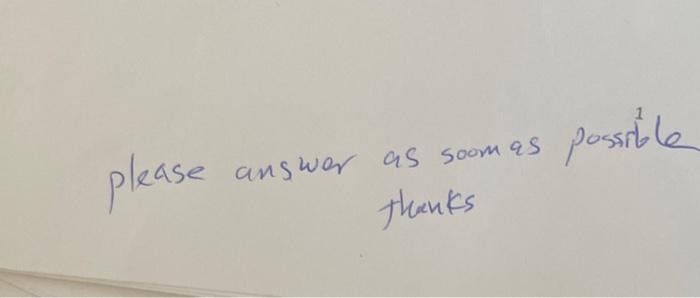 please answer as soom as possible
thanks
1